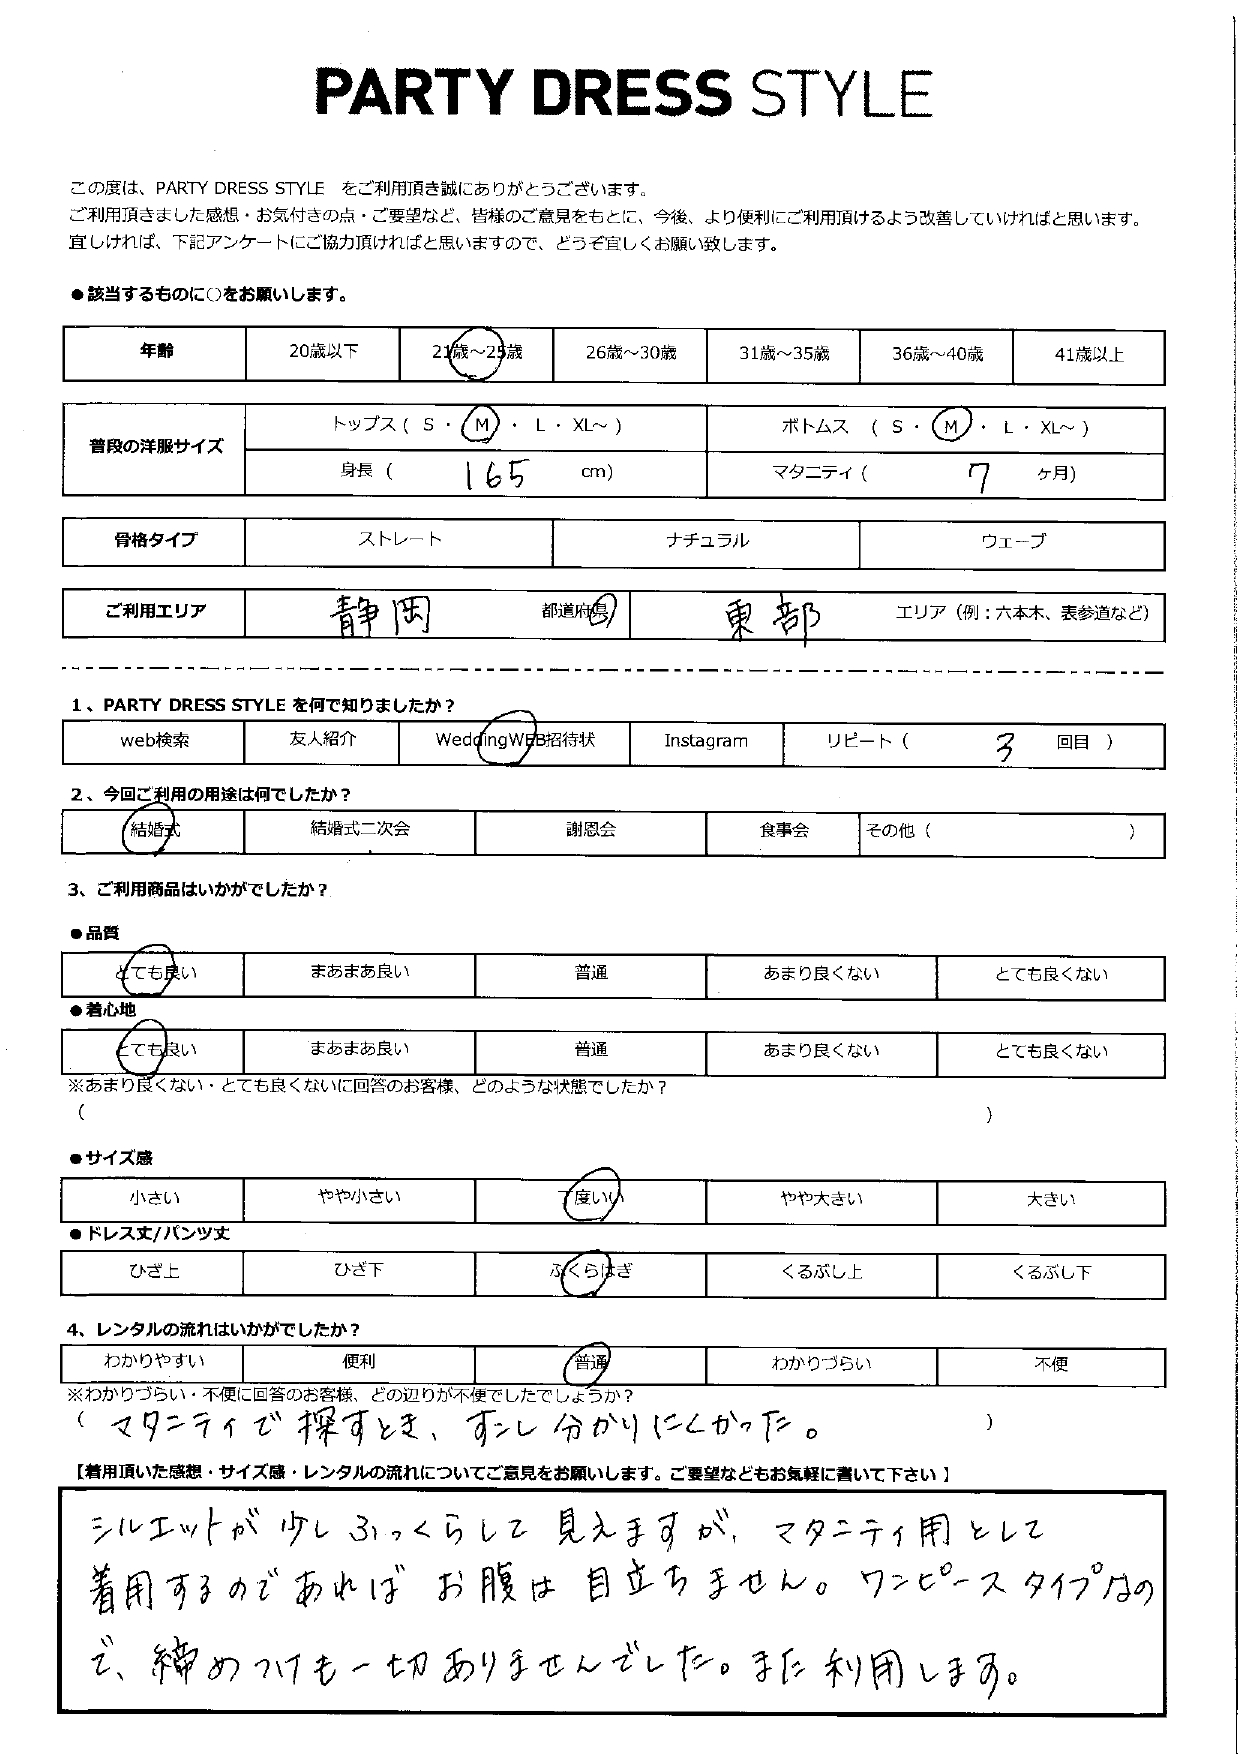 PARTY DRESS STYLE
この度は、PARTY DRESS STYLE をご利用頂き誠にありがとうございます。
ご利用頂きました感想・お気付きの点・ご要望など、皆様のご意見をもとに、今後、より便利にご利用頂けるよう改善していければと思います。
宜しければ、下記アンケートにご協力頂ければと思いますので、どうぞ宜しくお願い致します。
●該当するものに○をお願いします。
年齢 20歳以下 21歳～25歳 26歳～30歳 31歳～35歳 36歳～40歳 41歳以上
普段の洋服サイズ トップス ( S ・ M ・ L ・ XL～ ) ボトムス ( S ・ M ・ L ・ XL～ )
身長 ( 165 cm) マタニティ ( 7 ヶ月)
骨格タイプ ストレート ナチュラル ウェーブ
ご利用エリア 静岡 都道府県 東部 エリア（例：六本木、表参道など）
1、PARTY DRESS STYLE を何で知りましたか？
web検索 友人紹介 WeddingWEB招待状 Instagram リピート ( 3 回目 )
2、今回ご利用の用途は何でしたか？
結婚式 結婚式二次会 謝恩会 食事会 その他 ( )
3、ご利用商品はいかがでしたか？
●品質
とても良い まあまあ良い 普通 あまり良くない とても良くない
●着心地
とても良い まあまあ良い 普通 あまり良くない とても良くない
※あまり良くない・とても良くないに回答のお客様、どのような状態でしたか？
( )
●サイズ感
小さい やや小さい 丁度いい やや大きい 大きい
●ドレス丈/パンツ丈
ひざ上 ひざ下 ふくらはぎ くるぶし上 くるぶし下
4、レンタルの流れはいかがでしたか？
わかりやすい 便利 普通 わかりづらい 不便
※わかりづらい・不便に回答のお客様、どの辺りが不便でしたでしょうか？
( マタニティで探すとき、すこし分かりにくかった。 )
【着用頂いた感想・サイズ感・レンタルの流れについてご意見をお願いします。ご要望などもお気軽に書いて下さい 】
シルエットが少しふっくらして見えますが、マタニティ用として
着用するのであればお腹は目立ちません。ワンピースタイプなの
で、締めつけも一切ありませんでした。また利用します。